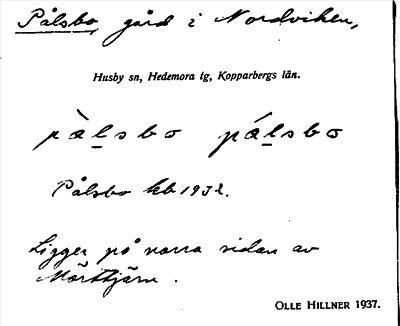 Pålsbo, gård i Nordviken,
Husby sn, Hedemora tg, Kopparbergs län.
pàlsbo pálsbo
Pålsbo kb 1932.
Ligger på norra sidan av
Mörttjärn.
OLLE HILLNER 1937.